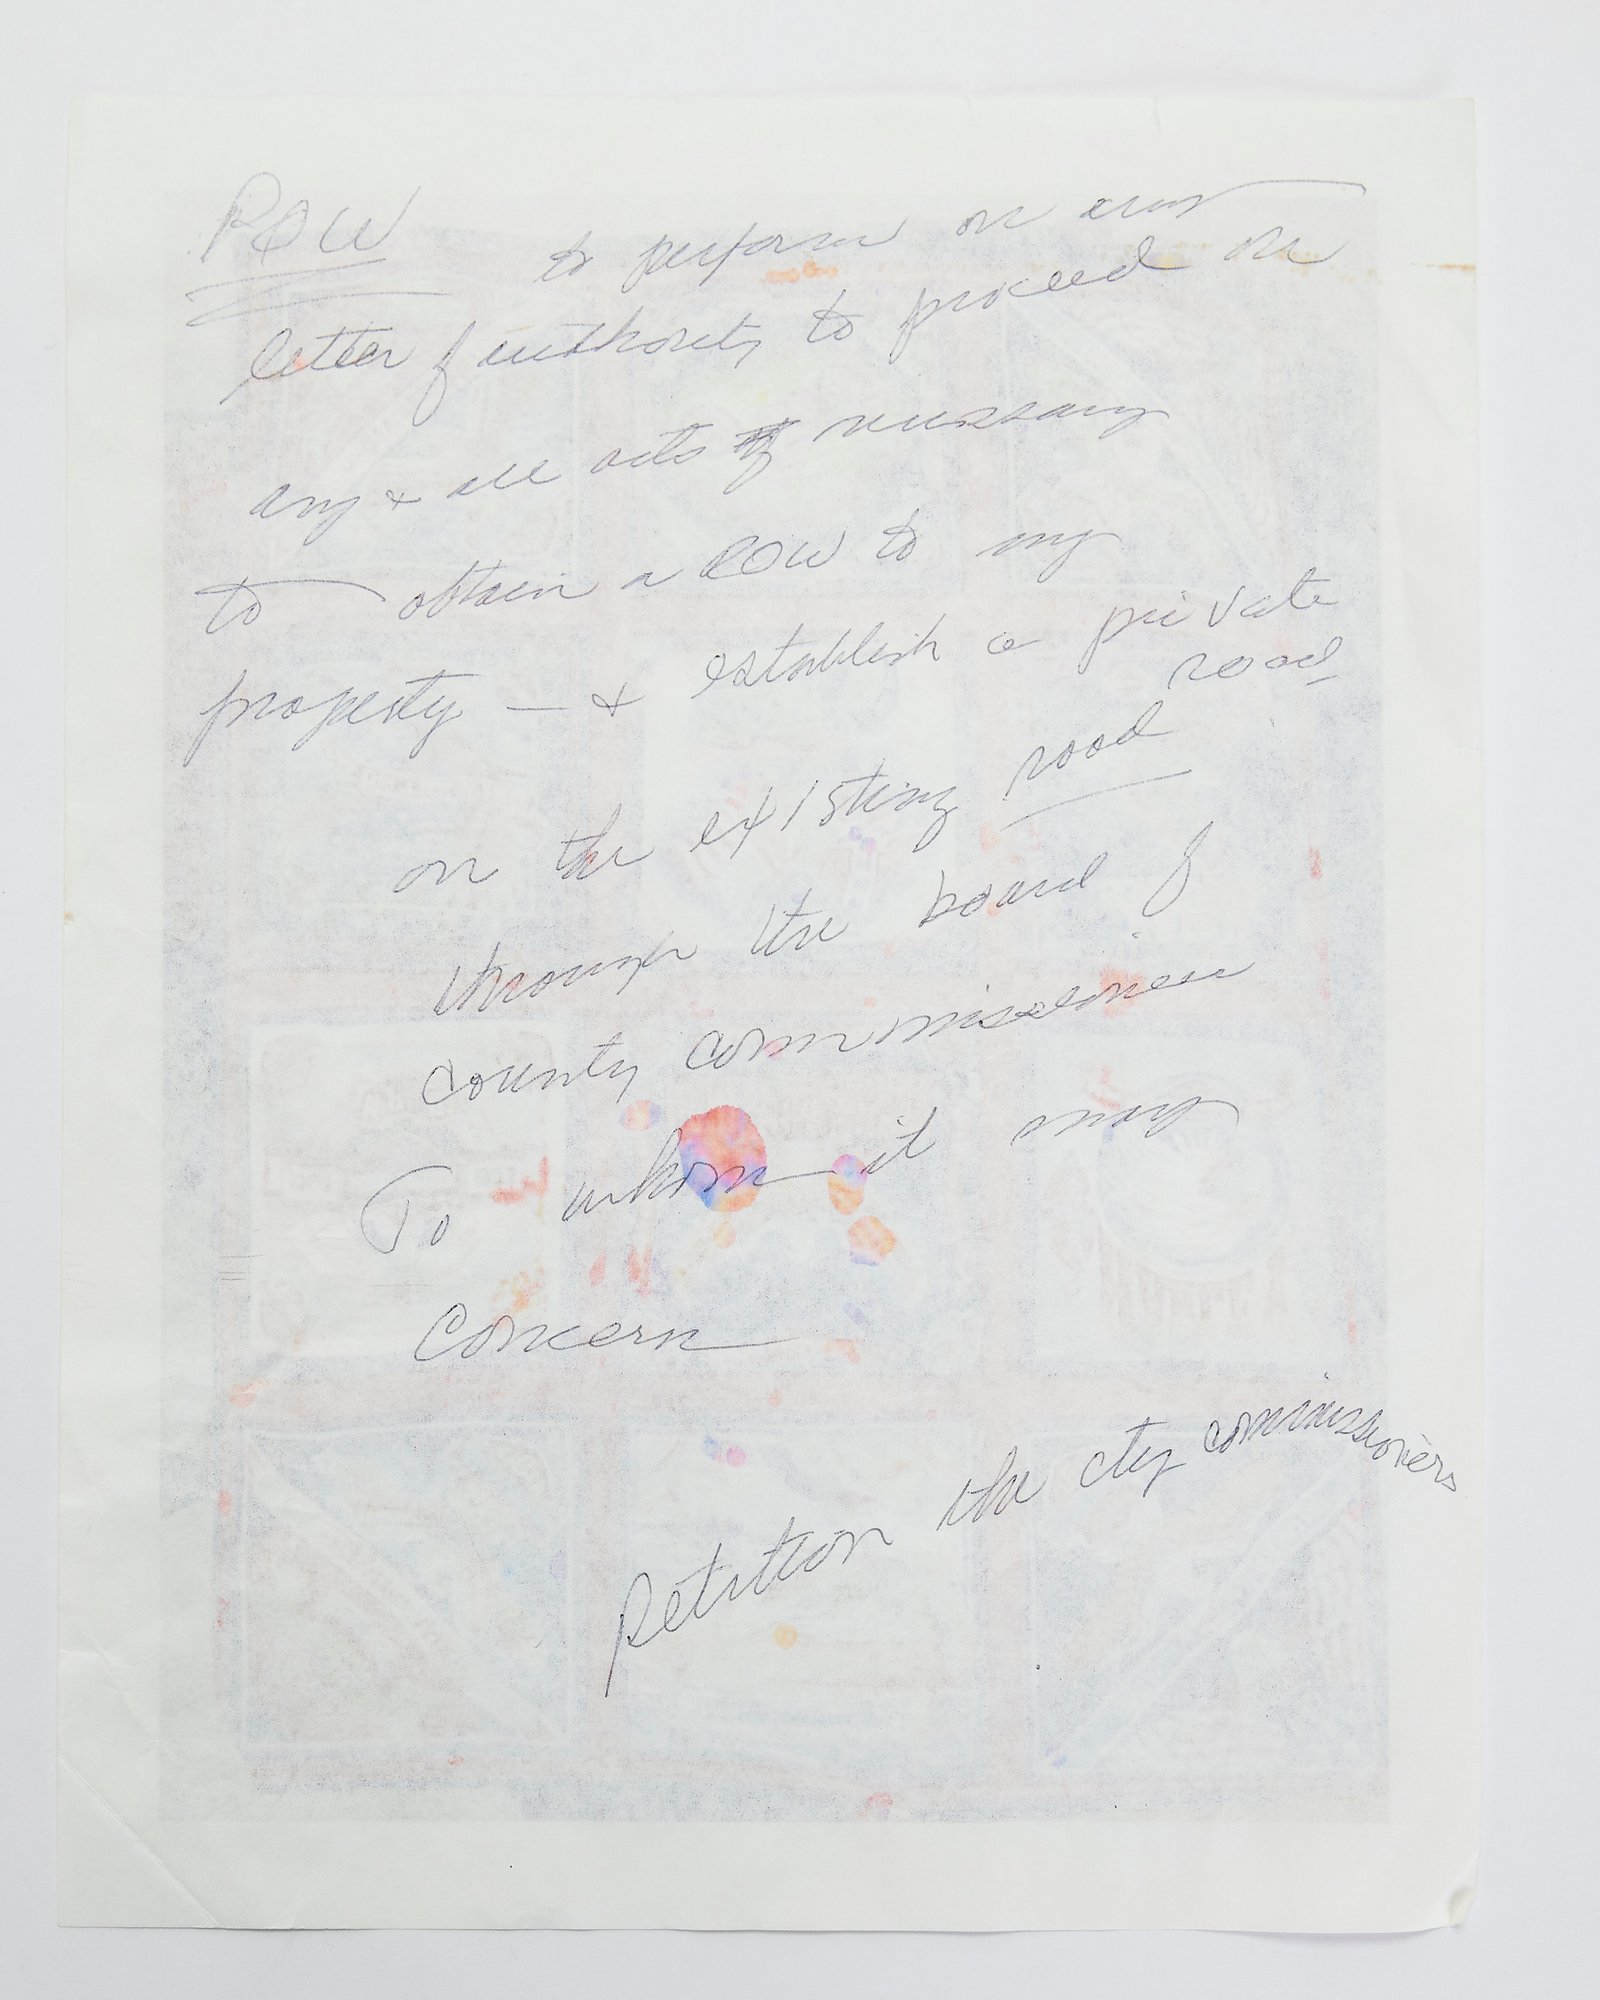 ROW
to perform on any
letter of authority to proceed on
any & all acts of necessary
to obtain a ROW to my
property — & establish a private
road
on the existing road
through the board of
county commissioners
To whom it may
Concern
Petition the cty commissioners